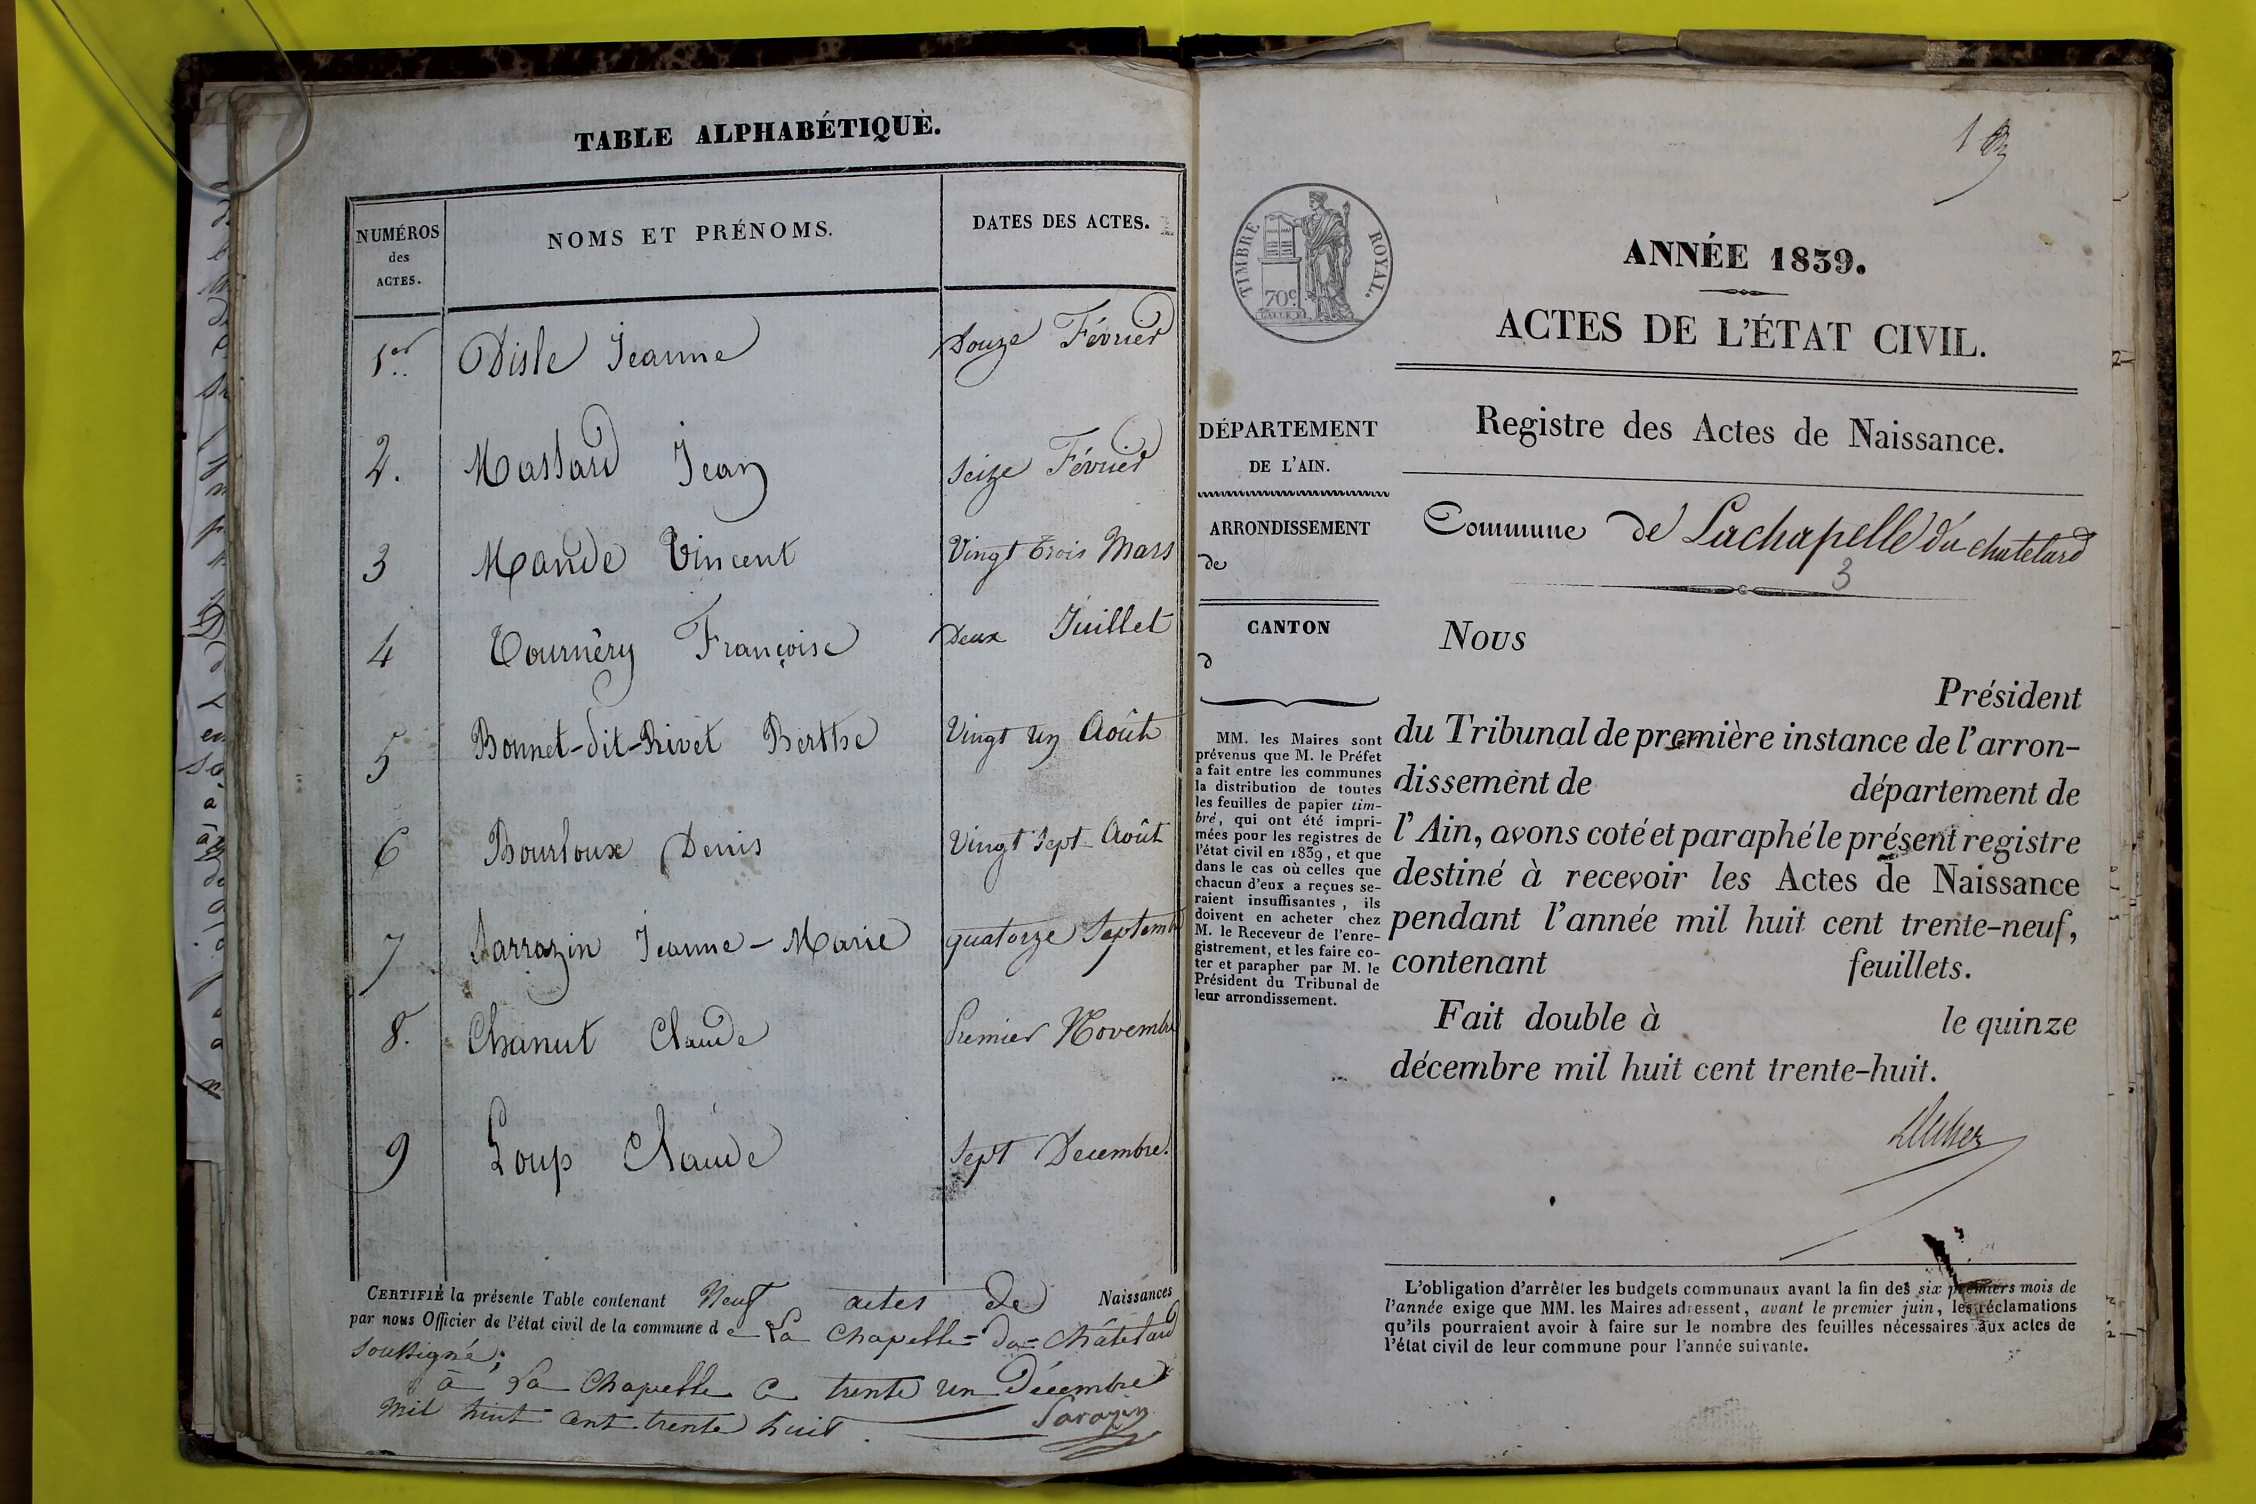 TABLE ALPHABÉTIQUE.
NUMÉROS
des
ACTES.
NOMS ET PRÉNOMS.
DATES DES ACTES.
1er Disle Jeanne Douze Février
2. Massard Jean Seize Février
3 Mande Vincent Vingt trois Mars
4 Tournery Françoise Deux Juillet
5 Bonnet-dit-Rivet Berthe Vingt un Août
6 Bourloux Denis Vingt sept Août
7 Sarrazin Jeanne-Marie quatorze Septemb
8. Chanut Claude Premier Novembre
9 Loup Claude Sept Decembre.
CERTIFIÉ la présente Table contenant Neuf actes de Naissances
par nous Officier de l'état civil de la commune de La Chapelle-du-Châtelard
soussigné;
à La Chapelle ce trente un Décembre
mil huit cent trente huit.
Sarazin
1
TIMBRE ROYAL.
70c
ANNÉE 1839.
ACTES DE L'ÉTAT CIVIL.
Registre des Actes de Naissance.
Commune de Lachapelle du chatelard
3
DÉPARTEMENT
DE L'AIN.
ARRONDISSEMENT
de
CANTON
d
MM. les Maires sont
prévenus que M. le Préfet
a fait entre les communes
la distribution de toutes
les feuilles de papier tim-
bré, qui ont été impri-
mées pour les registres de
l'état civil en 1839, et que
dans le cas où celles que
chacun d'eux a reçues se-
raient insuffisantes, ils
doivent en acheter chez
M. le Receveur de l'enre-
gistrement, et les faire co-
ter et parapher par M. le
Président du Tribunal de
leur arrondissement.
Nous
Président
du Tribunal de première instance de l'arron-
dissement de département de
l'Ain, avons coté et paraphé le présent registre
destiné à recevoir les Actes de Naissance
pendant l'année mil huit cent trente-neuf,
contenant feuillets.
Fait double à le quinze
décembre mil huit cent trente-huit.
L'obligation d'arrêter les budgets communaux avant la fin des six premiers mois de
l'année exige que MM. les Maires adressent, avant le premier juin, les réclamations
qu'ils pourraient avoir à faire sur le nombre des feuilles nécessaires aux actes de
l'état civil de leur commune pour l'année suivante.